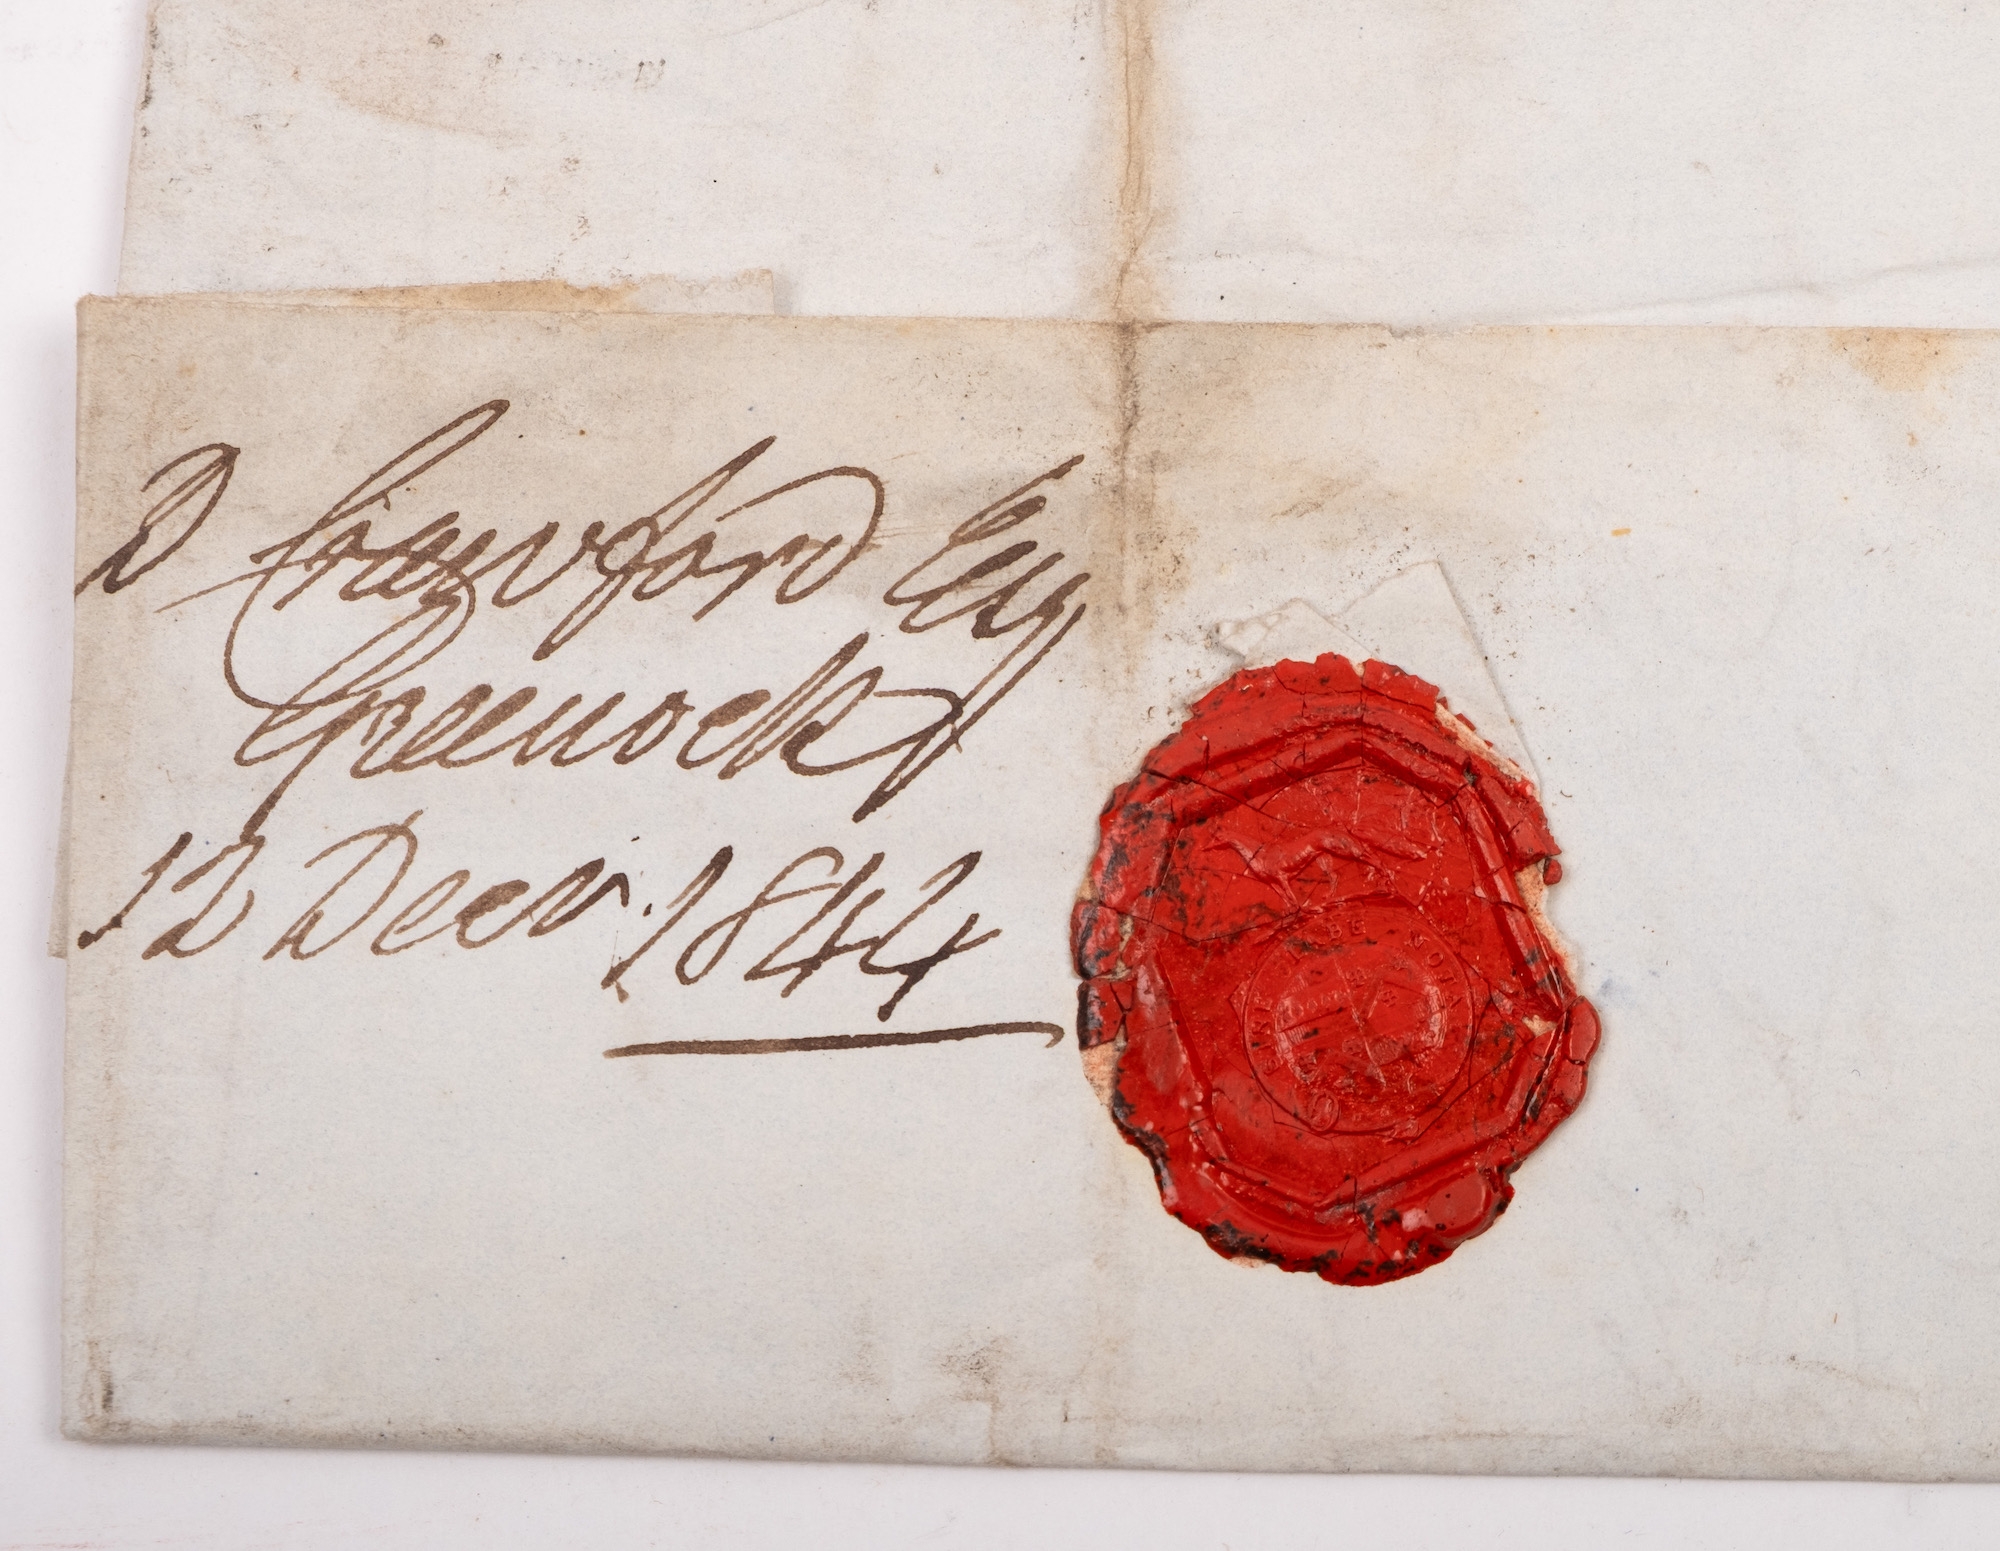 D Crawford Esq
Greenock
12 Decr. 1844